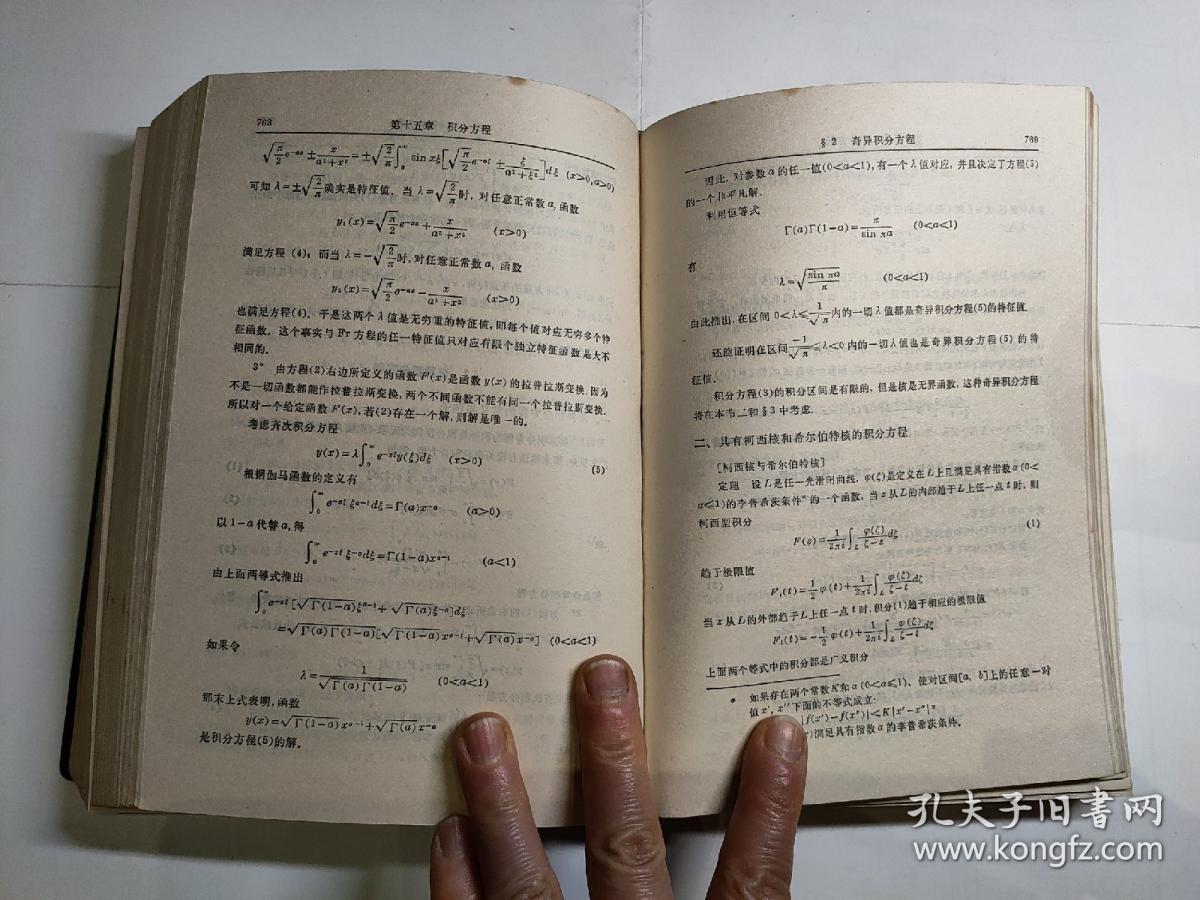 768 第十五章 积分方程
√(π/2) e^{-ax} ± x/(a²+x²) = ±√(2/π) ∫₀^∞ sin xξ [√(π/2) e^{-aξ} ± ξ/(a²+ξ²)] dξ (x>0, a>0)
可知 λ=±√(2/π) 确实是特征值. 当 λ=√(2/π) 时, 对任意正常数 a, 函数
y₁(x)=√(π/2) e^{-ax} + x/(a²+x²) (x>0)
满足方程 (4); 而当 λ=-√(2/π) 时, 对任意正常数 a, 函数
y₂(x)=√(π/2) e^{-ax} - x/(a²+x²) (x>0)
也满足方程(4). 于是这两个 λ 值是无穷重的特征值, 即每个值对应无穷多个特
征函数. 这个事实与 Fr 方程的任一特征值只对应有限个独立特征函数是大不
相同的.
3° 由方程(2)右边所定义的函数 F(x)是函数 y(x) 的拉普拉斯变换. 因为
不是一切函数都能作拉普拉斯变换, 两个不同函数不能有同一个拉普拉斯变换.
所以对一个给定函数 F(x), 若(2)存在一个解, 则解是唯一的.
考虑齐次积分方程
y(x)=λ∫₀^∞ e^{-xξ} y(ξ)dξ (x>0) (5)
根据伽马函数的定义有
∫₀^∞ e^{-xξ} ξ^{a-1} dξ=Γ(a)x^{-a} (a>0)
以 1-a 代替 a, 得
∫₀^∞ e^{-xξ} ξ^{-a} dξ=Γ(1-a)x^{a-1} (a<1)
由上面两等式推出
∫₀^∞ e^{-xξ} [√Γ(1-a) ξ^{a-1} + √Γ(a) ξ^{-a}]dξ
=√(Γ(a)Γ(1-a)) [√Γ(1-a) x^{a-1}+√Γ(a) x^{-a}] (0<a<1)
如果令
λ= 1/√(Γ(a)Γ(1-a)) (0<a<1)
那末上式表明, 函数
y(x)=√Γ(1-a) x^{a-1}+√Γ(a) x^{-a}
是积分方程(5)的解.
§2 奇异积分方程 769
因此, 对参数 a 的任一值(0<a<1), 有一个 λ 值对应, 并且决定了方程(5)
的一个非平凡解.
利用恒等式
Γ(a)Γ(1-a)= π/sin πa (0<a<1)
有
λ=√(sin πa/π) (0<a<1)
由此推出, 在区间 0<λ≤1/√π 内的一切 λ 值都是奇异积分方程(5)的特征值.
还能证明在区间 -1/√π ≤λ<0 内的一切 λ 值也是奇异积分方程(5) 的特
征值.
积分方程(3)的积分区间是有限的, 但是核是无界函数, 这种奇异积分方程
将在本节二和 §3 中考虑.
二、具有柯西核和希尔伯特核的积分方程
[柯西核与希尔伯特核]
定理 设 L 是任一光滑闭曲线, φ(ζ)是定义在 L 上且满足具有指数 α(0<
α≤1)的李普希茨条件* 的一个函数, 当 z 从 L 的内部趋于 L 上任一点 t 时, 则
柯西型积分
F(z)= 1/(2πi) ∫_L φ(ζ)/(ζ-z) dζ (1)
趋于极限值
Fᵢ(t)= ½ φ(t)+ 1/(2πi) ∫_L φ(ζ)/(ζ-t) dζ
当 z 从 L 的外部趋于 L 上任一点 t 时, 积分(1)趋于相应的极限值
=- ½ φ(t)+ 1/(2πi) ∫_L φ(ζ)/(ζ-t) dζ
上面两个等式中的积分都是广义积分
* 如果存在两个常数 K 和 α (0<α≤1), 使对区间[a, b]上的任意一对
值 x′, x″下面的不等式成立:
|f(x′)-f(x″)|≤K|x′-x″|^α
x)满足具有指数 α 的李普希茨条件.
孔夫子旧书网
www.kongfz.com